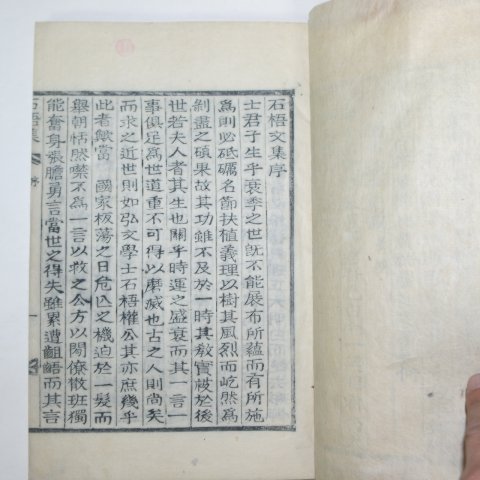 石梧文集序
士君子生乎衰季之世旣不能展布所蘊而有所施
爲則必砥礪名節扶植義理以樹其風烈而屹然爲
剝盡之碩果故其功雖不及於一時其敎實被於後
世若夫人者其生也關乎時運之盛衰而其一言一
事俱足爲世道重不可得以磨滅也古之人則尚矣
而求之近世則如弘文學士石梧權公其亦庶幾乎
此者歟當 國家板蕩之日危亡之機迫於一髮而
擧朝恬然噤不爲一言以救之公方以閑僚散班獨
能奮身張膽勇言當世之得失雖累遭齟齬而其言
石梧集 序 一